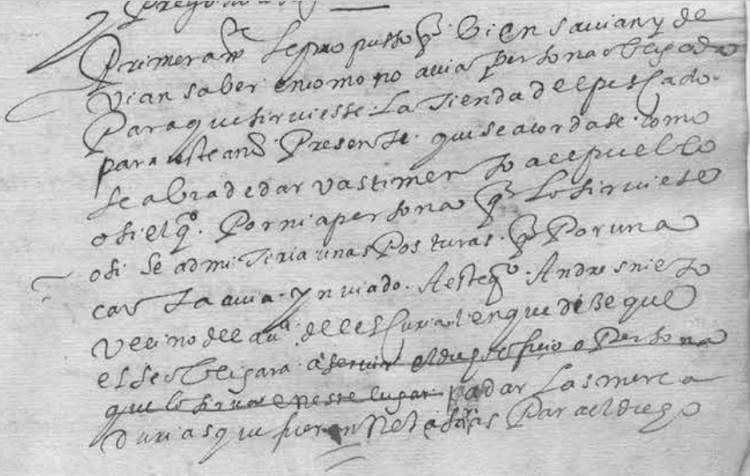 Primeramte se propusso q bien savian y de
vian saber en como no avia persona obligada
Para que sirviesse. La Tienda del pescado.
para este año. Presente. que se acordase. como
se abra de dar vastimento a el pueblo
o si el qo. Pornia persona q lo sirviese
o si se admitiria unas Posturas. q Por una
carta avia. ynviado. A este qo. Andres nieto
Vecino de la va. de el escurial en que dize que
el se obligara a servir el dho officio o Persona
que lo sirva en esse lugar pa dar Las merca
durias que fueren necesarias Para el dicho